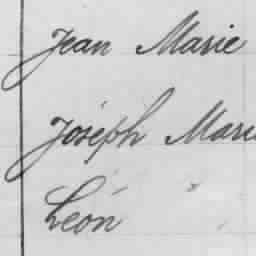 Jean Marie
Joseph Marie
Léon "